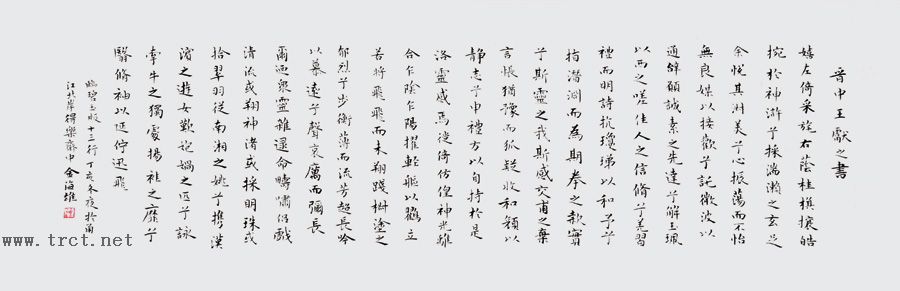 晋中王獻之書
嬉左倚采旄右蔭桂旗攘皓
捥於神滸兮採湍瀨之玄芝
余悅其淑美兮心振蕩而不怡
無良媒以接歡兮託微波以
通辭願誠素之先達兮解玉珮
以而之嗟佳人之信脩兮羌習
禮而明詩抗瓊珶以和予兮
指潛淵而為期拳之款實
兮斯靈之我斯感交甫之棄
言悵猶豫而狐疑收和顏以
静志兮申禮方以自持於是
洛靈感焉徙倚仿偟神光離
合乍陰乍陽擢輕軀以鶴立
若將飛飛而未翔踐椒塗之
郁烈兮步衡薄而流芳超長吟
以慕遠兮聲哀厲而彌長
爾迺衆靈雜遝命疇嘯侶戲
清流或翔神渚或採明珠或
拾翠羽從南湘之姚兮攜漢
濱之遊女歎匏媧之匹兮詠
牽牛之獨處揚袿之靡兮
翳脩袖以延佇迅飛
臨碧玉版十三行丁亥冬夜於甬
江北岸得樂齋中金海雄
www.trct.net